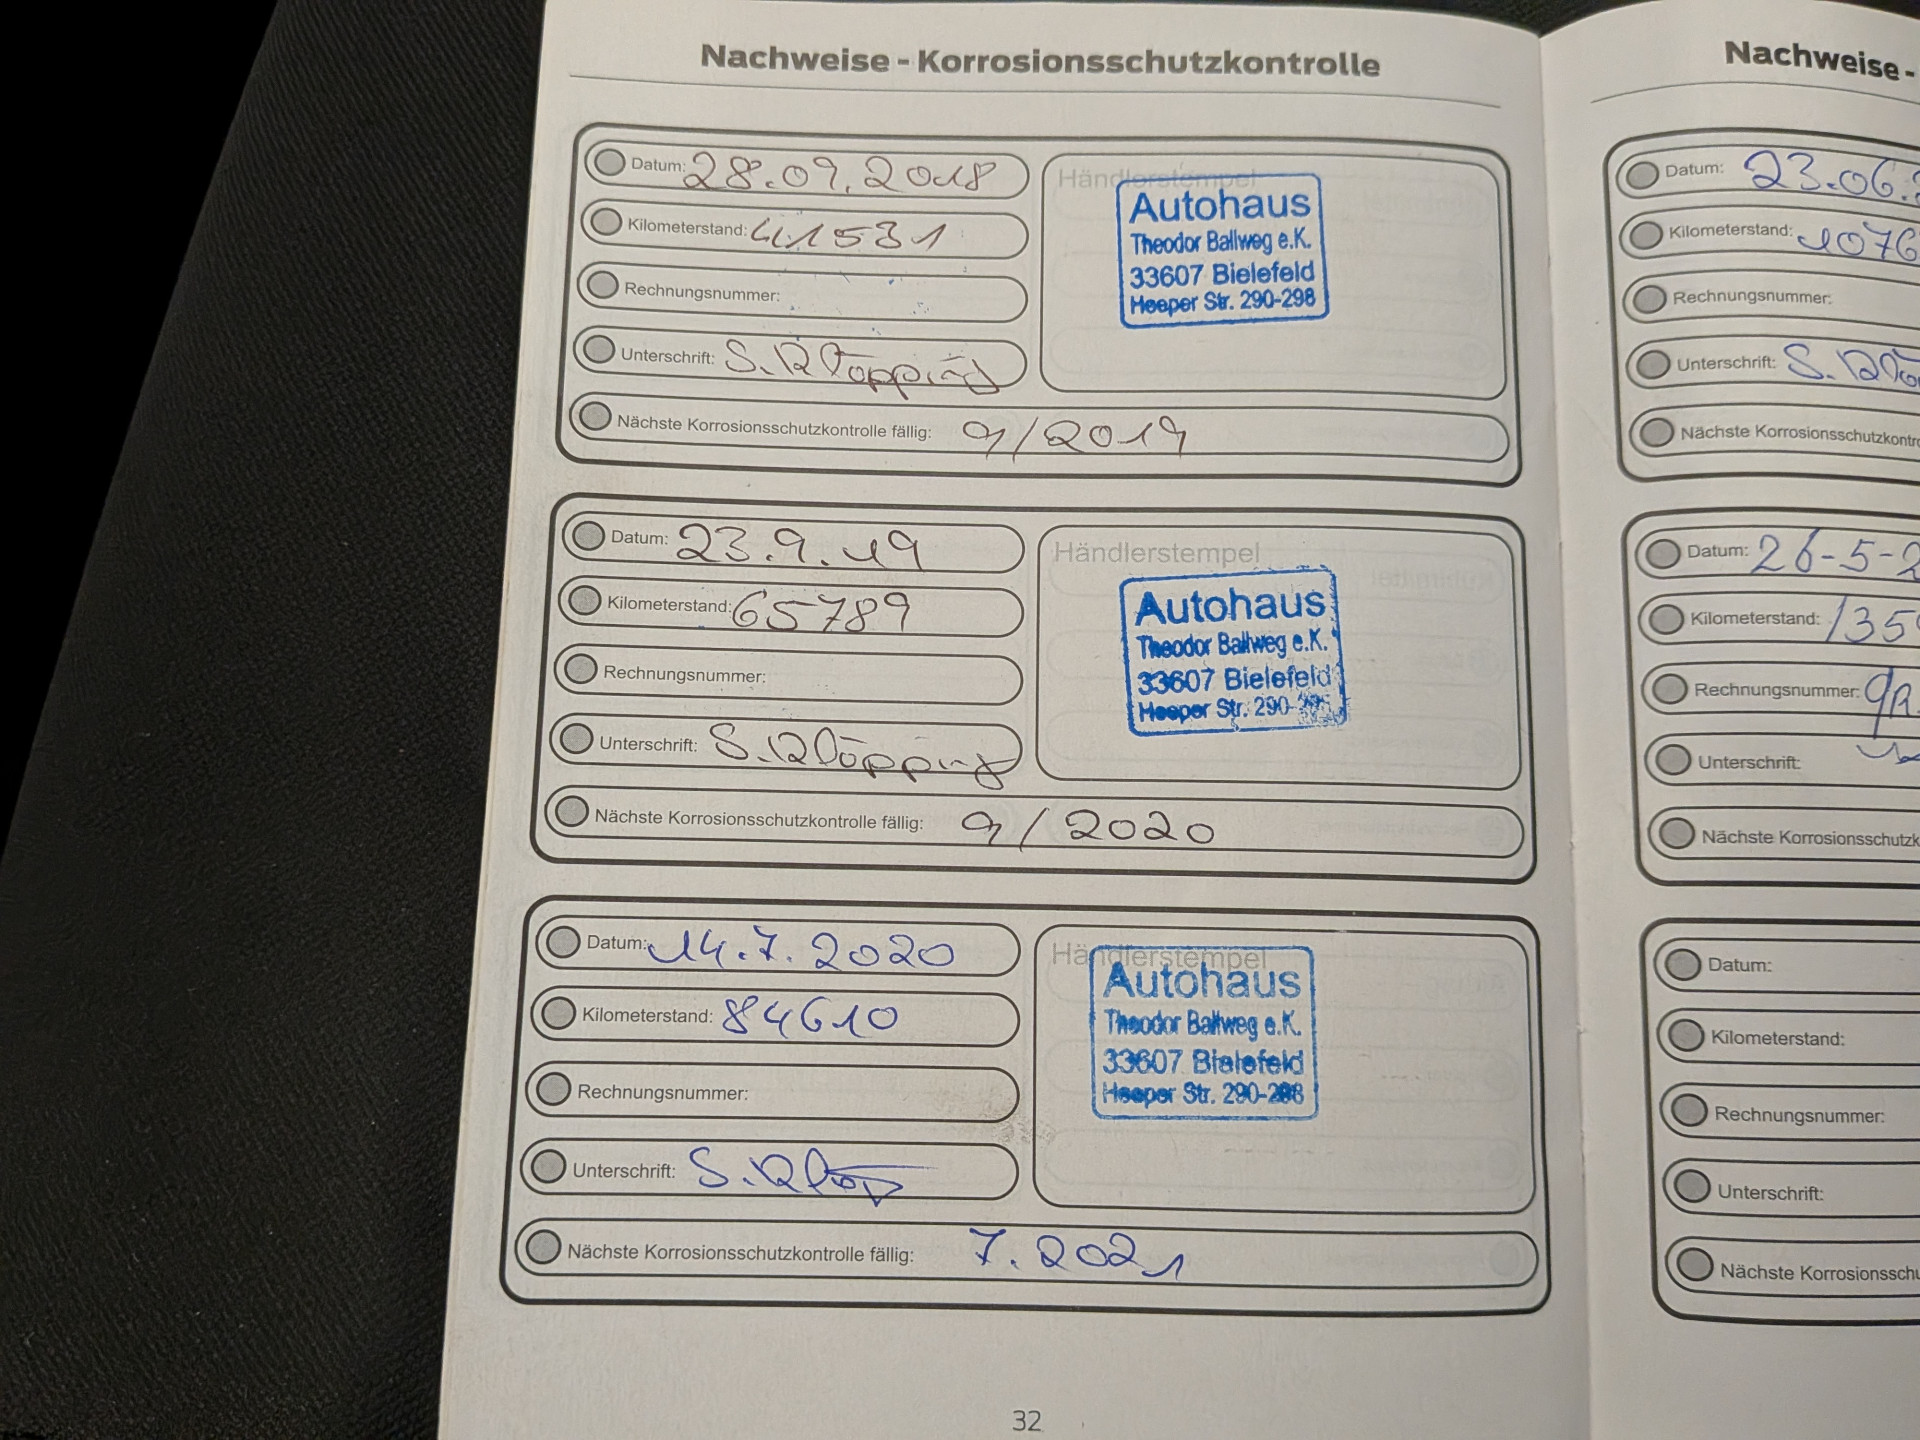 Nachweise - Korrosionsschutzkontrolle
Datum: 28.09.2018
Kilometerstand: 41531
Rechnungsnummer:
Unterschrift: S. Klöpping
Händlerstempel
Autohaus
Theodor Ballweg e.K.
33607 Bielefeld
Heeper Str. 290-298
Nächste Korrosionsschutzkontrolle fällig: 9/2019
Datum: 23.9.19
Kilometerstand: 65789
Rechnungsnummer:
Unterschrift: S. Klöpping
Händlerstempel
Autohaus
Theodor Ballweg e.K.
33607 Bielefeld
Heeper Str. 290-
Nächste Korrosionsschutzkontrolle fällig: 9/2020
Datum: 14.7.2020
Kilometerstand: 84610
Rechnungsnummer:
Unterschrift: S.
Händlerstempel
Autohaus
Theodor Ballweg e.K.
33607 Bielefeld
Heeper Str. 290-298
Nächste Korrosionsschutzkontrolle fällig: 7.2021
32
Nachweise -
Datum: 23.06.
Kilometerstand: 1076
Rechnungsnummer:
Unterschrift: S.
Nächste Korrosionsschutzkontr
Datum: 26-5-2
Kilometerstand: 135
Rechnungsnummer:
Unterschrift:
Nächste Korrosionsschutzk
Datum:
Kilometerstand:
Rechnungsnummer:
Unterschrift:
Nächste Korrosionsschu